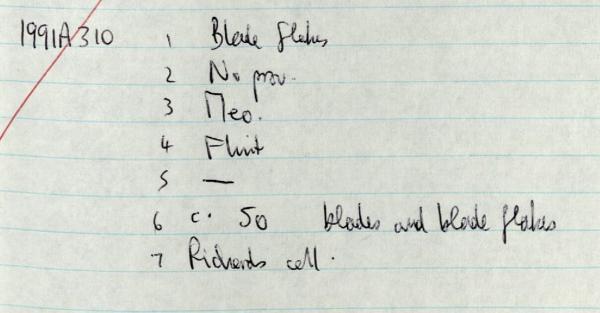 1991A310 1 Blade flakes
2 No prov.
3 Meo.
4 Flint
5 —
6 c. 50 blades and blade flakes
7 Richards coll.